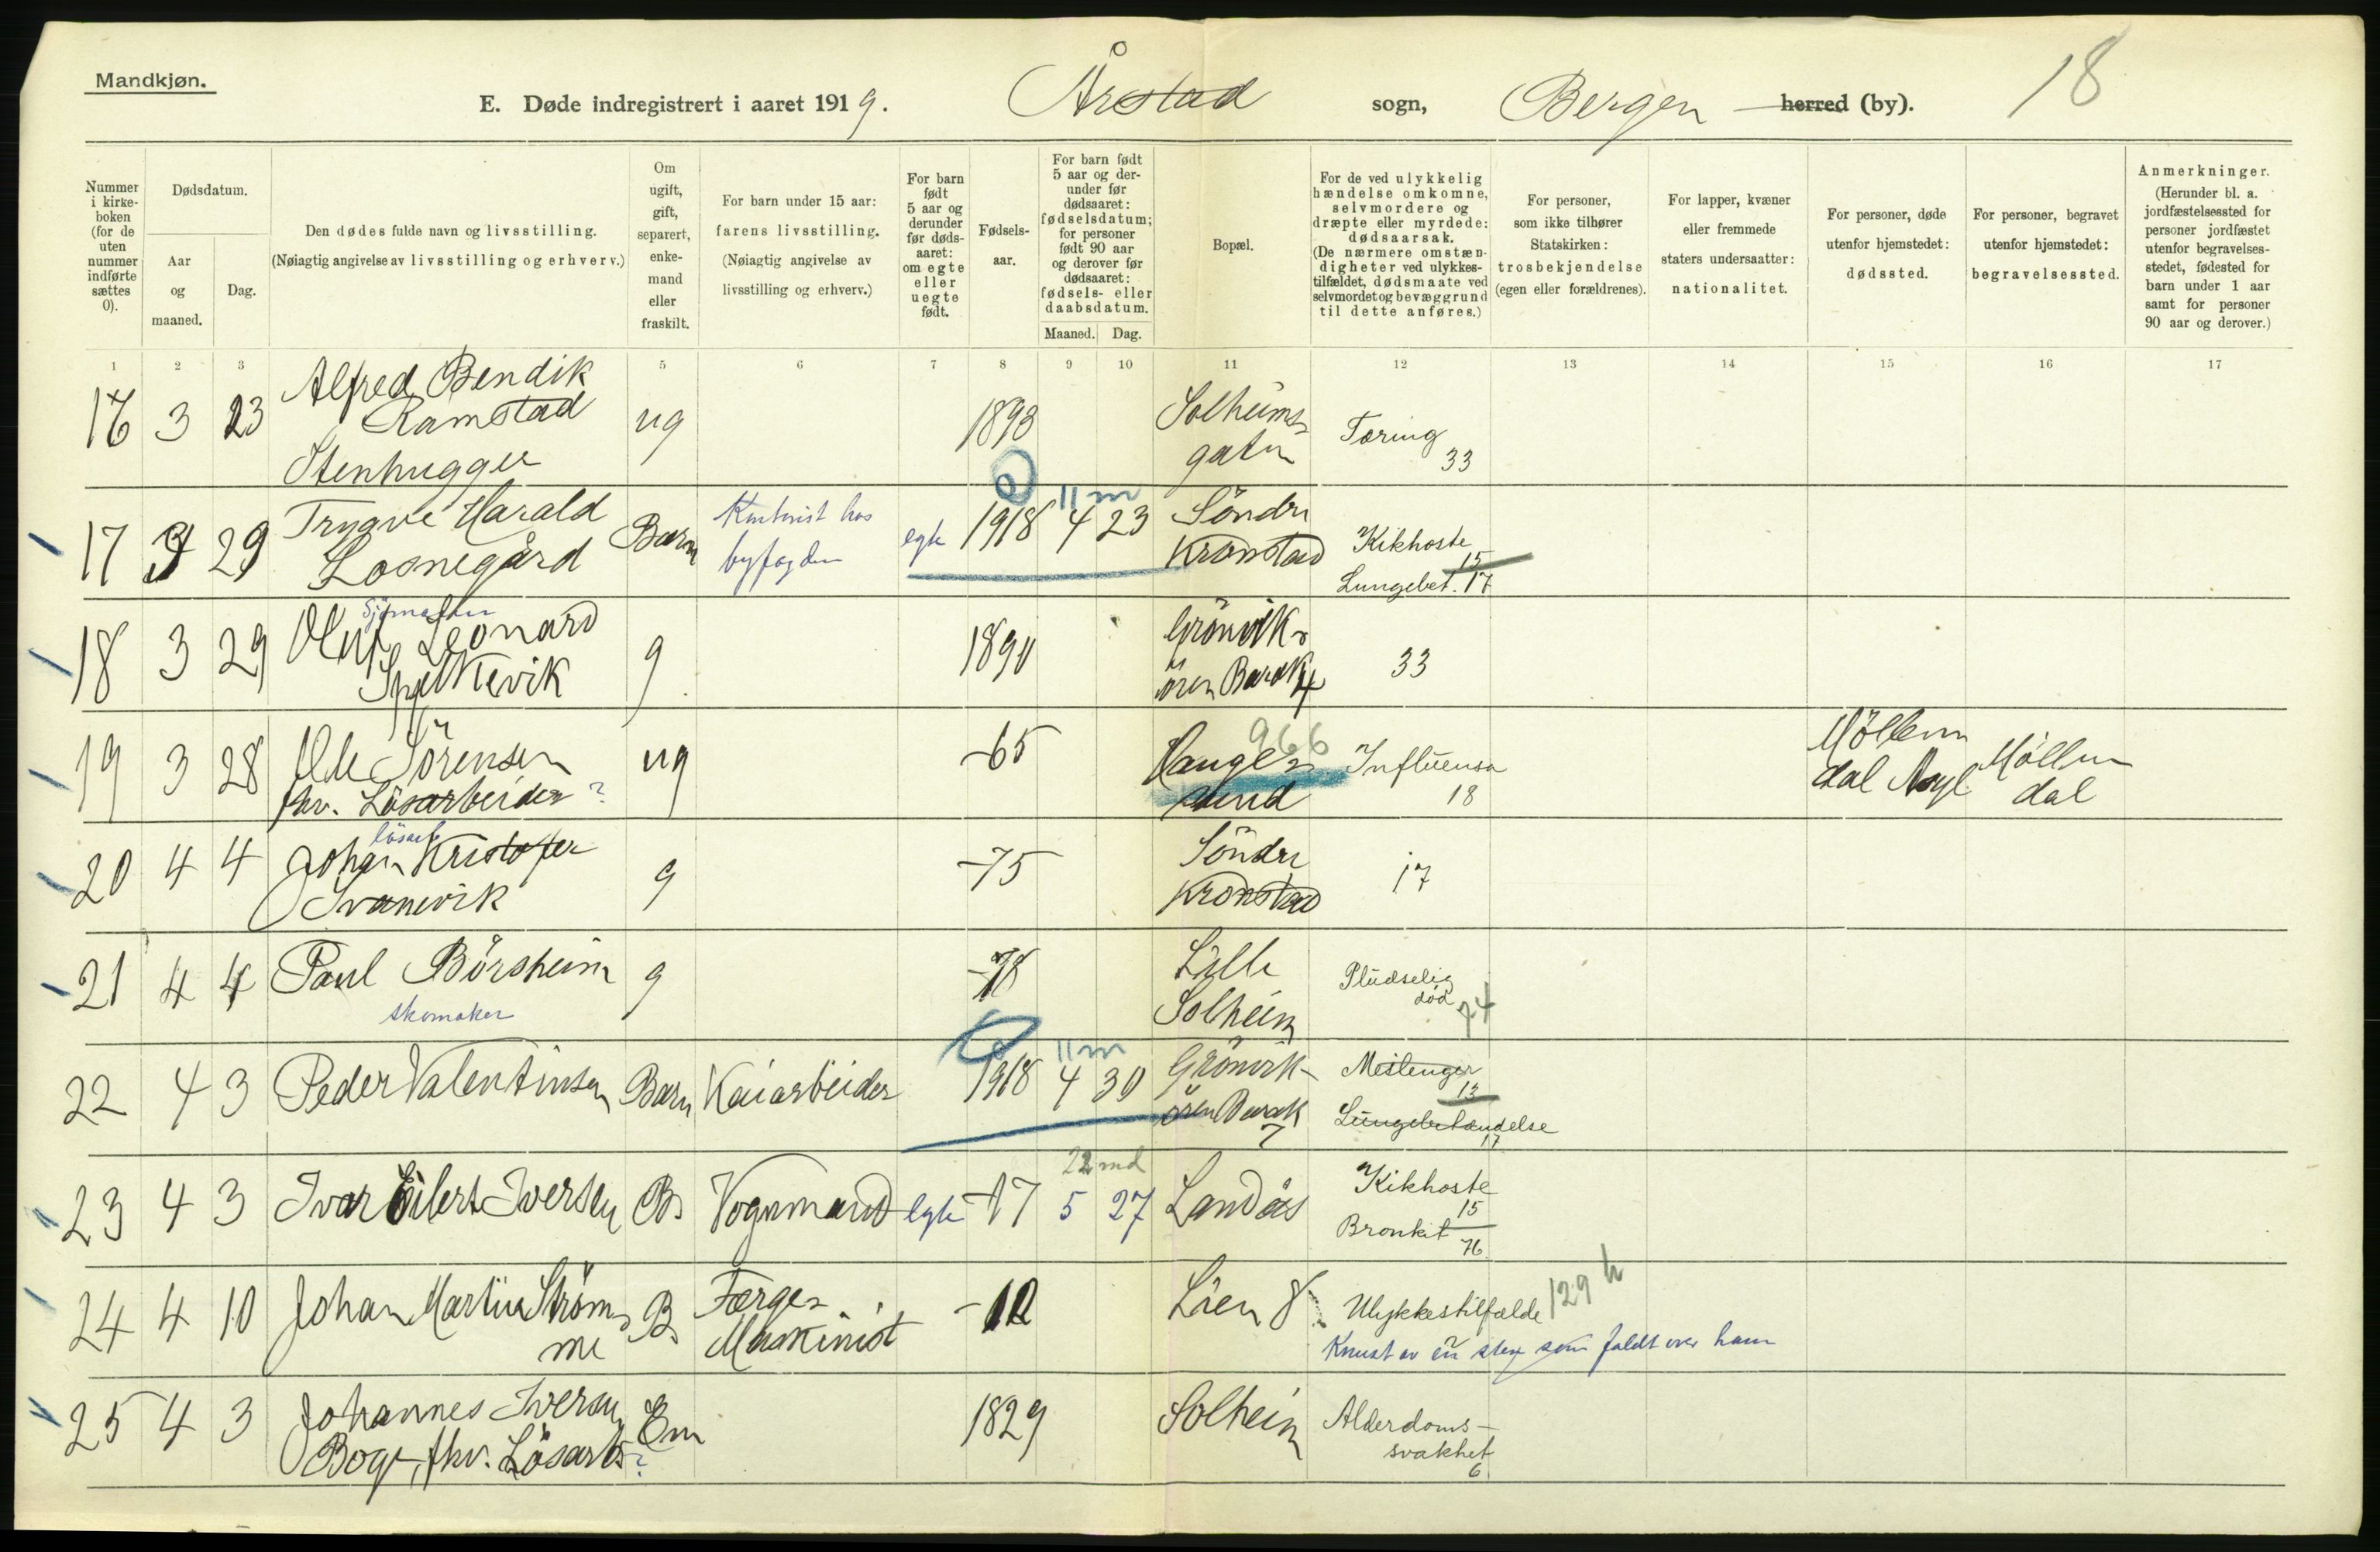 Mandkjøn.
E. Døde indregistrert i aaret 1919. Årstad sogn, Bergen herred (by). 18
Nummer i kirke-boken (for de uten nummer indførte sættes 0).
Dødsdatum.
Aar og maaned.
Dag.
Den dødes fulde navn og livsstilling.
(Nøiagtig angivelse av livsstilling og erhverv.)
Om ugift, gift, separert, enke-mand eller fraskilt.
For barn under 15 aar: farens livsstilling.
(Nøiagtig angivelse av livsstilling og erhverv.)
For barn født 5 aar og derunder før døds-aaret: om egte eller uegte født.
Fødsels-aar.
For barn født 5 aar og der-under før dødsaaret: fødselsdatum; for personer født 90 aar og derover før dødsaaret: fødsels- eller daabsdatum.
Maaned. Dag.
Bopæl.
For de ved ulykkelig hændelse omkomne, selvmordere og dræpte eller myrdede: dødsaarsak.
(De nærmere omstæn-digheter ved ulykkes-tilfældet, dødsmaate ved selvmordet og bevæggrund til dette anføres.)
For personer, som ikke tilhører Statskirken: trosbekjendelse (egen eller forældrenes).
For lapper, kvæner eller fremmede staters undersaatter: nationalitet.
For personer, døde utenfor hjemstedet: dødssted.
For personer, begravet utenfor hjemstedet: begravelsessted.
Anmerkninger.
(Herunder bl. a. jordfæstelsessted for personer jordfæstet utenfor begravelses-stedet, fødested for barn under 1 aar samt for personer 90 aar og derover.)
1 2 3 5 6 7 8 9 10 11 12 13 14 15 16 17
16 3 23 Alfred Bendik Ramstad Stenhugger ug 1893 Solheims gaten Tæring 33
17 3 29 Trygve Harald Losnegård Barn Kontorist hos byfogden egte 0 1918 11 m 4 23 Söndre Kronstad Kikhoste 15 Lungebet. 17
18 3 29 Sjömann Leonard g 1890 Grönviks ören Barak 4 33
19 3 28 Ole Sörensen fhv. Lösarbeider ? ug -65 966 Hauge sund Influensa 18 Möllen dal Möllen dal
20 4 4 lösarb Johan Kristofer Svanevik g -75 Söndre Kronstad 17
21 4 4 Paul Börsheim skomaker g -78 Lille Solheim Pludselig död 74
22 4 3 Peder Valentinsen Barn Kaiarbeider 1918 11 m 4 30 Grönvik-ören Barak 7 Meslinger 13 Lungebetændelse 17
23 4 3 Ivar Eilert Iversen B. Vognmand egte -17 22 md 5 27 Landås Kikhoste 15 Bronkit 76
24 4 10 Johan Martin Ströms me B. Færge- Maskinist -12 Lien 8 Ulykkestilfælde 129 h
Knust av en sten som faldt over ham
25 4 3 Johannes Iversen Boge, fhv. Lösarb. ? Em 1829 Solheim Alderdoms-svakhet 6